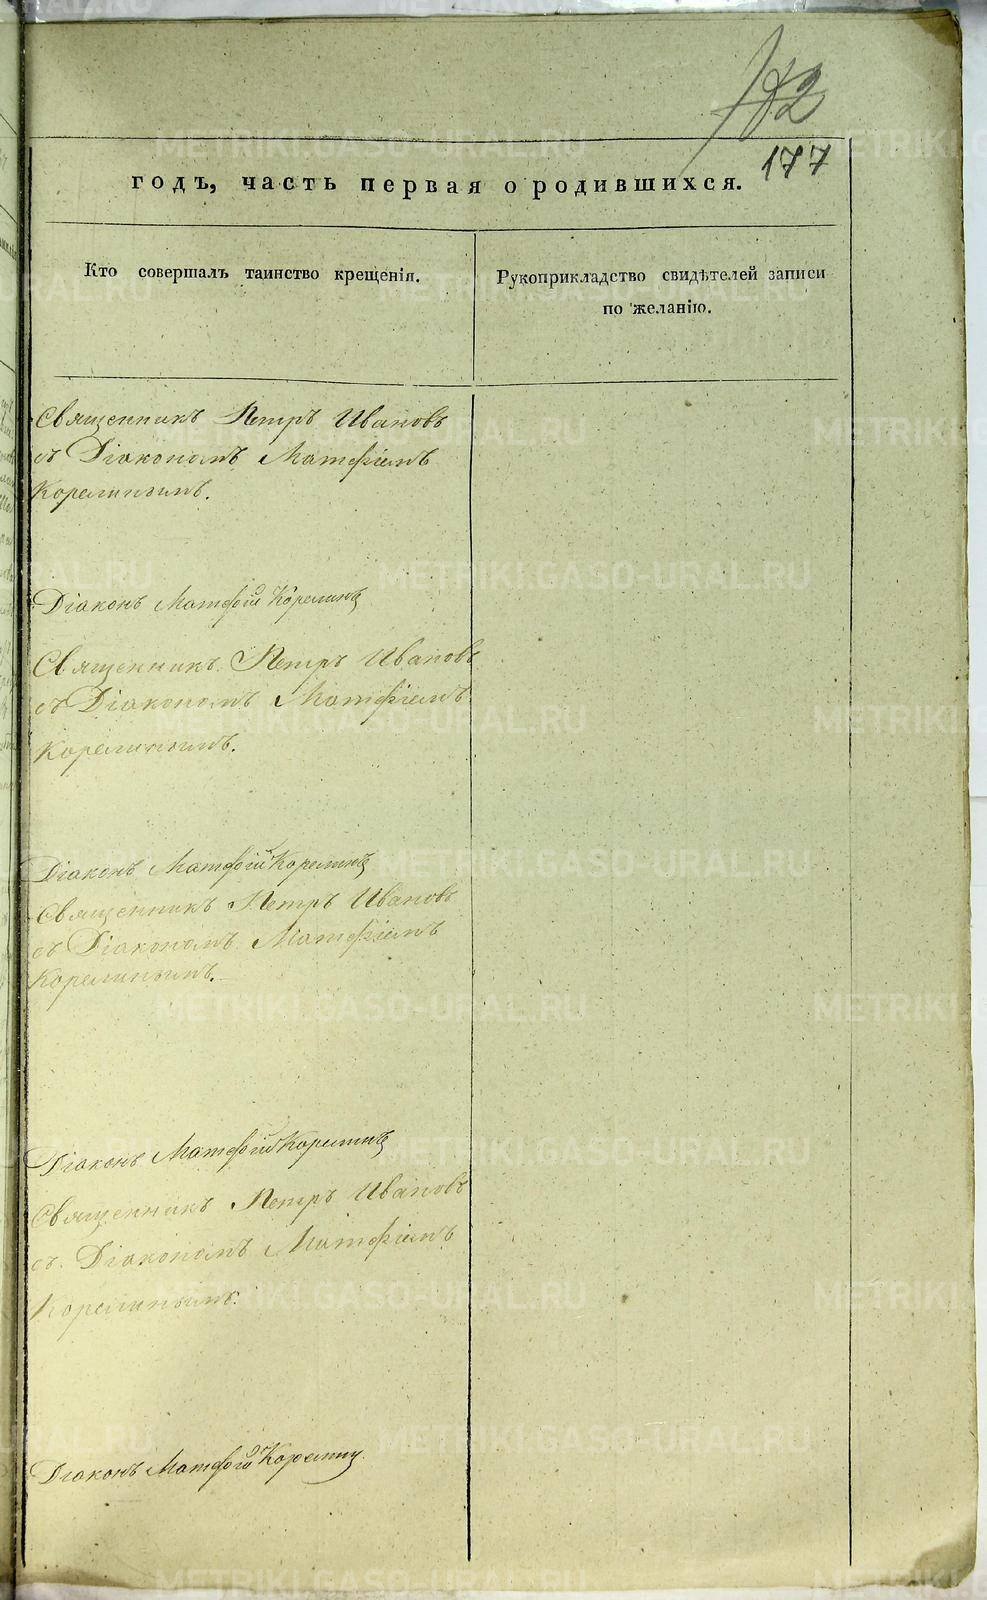 182
177
годъ, часть первая о родившихся.
Кто совершалъ таинство крещенія.
Рукоприкладство свидѣтелей записи
по желанію.
Священникъ Петръ Ивановъ
съ Діакономъ Матфіемъ
Корелинымъ.
Діаконъ Матфій Корелинъ
Священникъ Петръ Ивановъ
съ Діакономъ Матфіемъ
Корелинымъ.
Діаконъ Матфій Корелинъ
Священникъ Петръ Ивановъ
съ Діакономъ Матфіемъ
Корелинымъ.
Діаконъ Матфій Корелинъ
Священникъ Петръ Ивановъ
съ Діакономъ Матфіемъ
Корелинымъ.
Діаконъ Матфій Корелинъ
METRIKI.GASO-URAL.RU